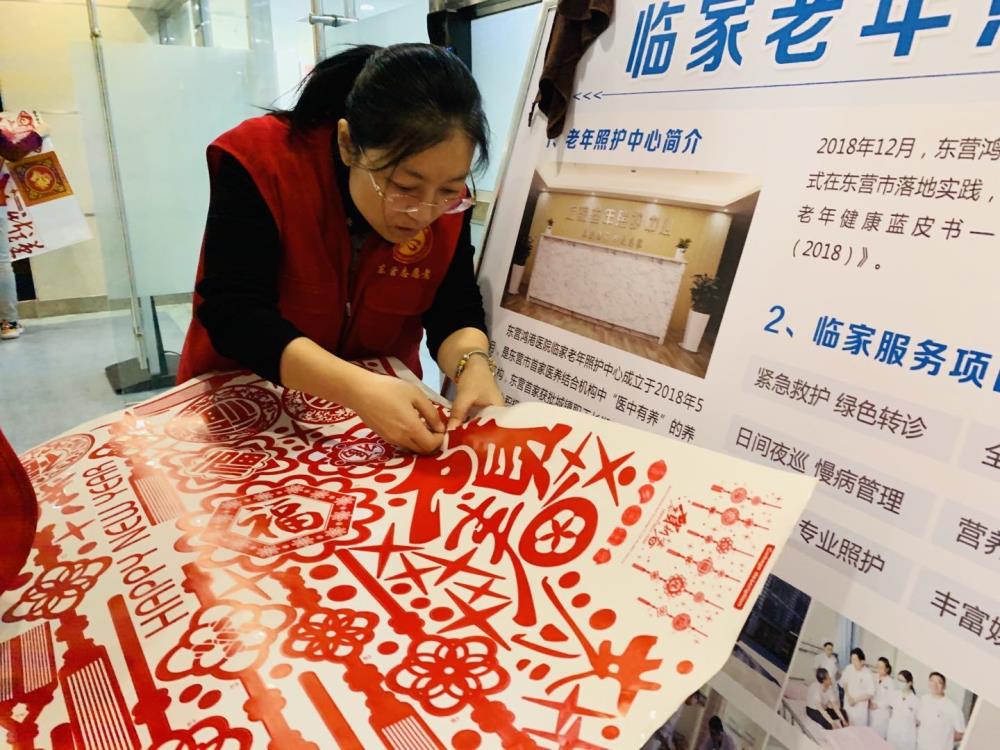 临家老年
1、老年照护中心简介
2018年12月，东营鸿
式在东营市落地实践，
老年健康蓝皮书—
（2018）》。
东营鸿港医院临家老年照护中心成立于2018年5
月，是东营市首家医养结合机构中“医中有养”的养
2、临家服务项
紧急救护 绿色转诊
日间夜巡 慢病管理
营养
专业照护
丰富娱
东营志愿者
HAPPY NEW YEAR
福
福
贺